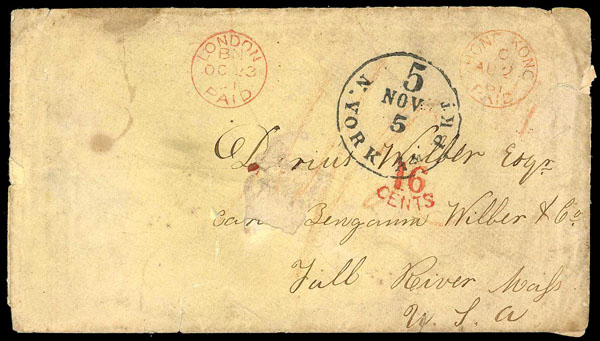 LONDON
BN
OC 23
61
PAID
5
N. YORK BR. PKT
NOV
5
HONG KONG
C
AU
61
PAID
Darius Wilber Esqr
16
CENTS
Care Bengamin Wilber & Co
Fall River Mass
U. S. a